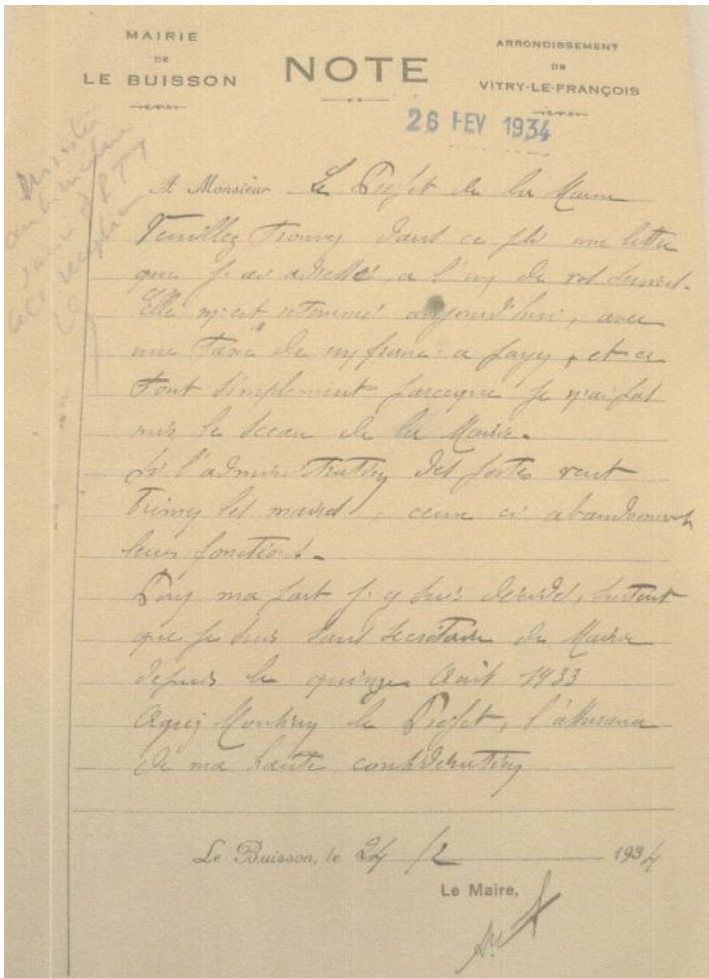 MAIRIE
DE
LE BUISSON
NOTE
ARRONDISSEMENT
DE
VITRY-LE-FRANÇOIS
26 FEV 1934
A Monsieur Le Préfet de la Marne
Veuillez trouver dans ce pli une lettre
que j'ai adressée, a l'un de vos services.
Elle m'est retournée aujourd'hui, avec
une taxe de un franc a payer, et ce
tout simplement parceque je n'ai pas
mis le sceau de la Mairie.
Si l'administration des postes veut
brimer les maires, ceux ci abandonneront
leurs fonctions.
Pour ma part j'y suis décidé, surtout
que je suis sans secrétaire de Mairie
depuis le quinze Août 1933
Agréez Monsieur le Préfet, l'assurance
de ma haute considération
Le Buisson, le 24/2 1934
Le Maire,